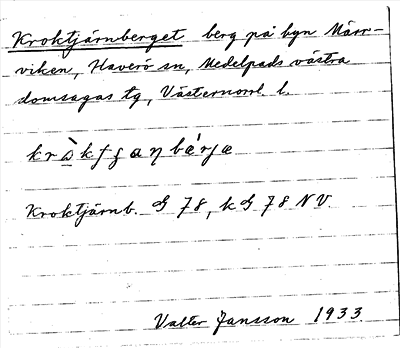 Kroktjärnberget berg på byn Närr-
viken, Haverö sn, Medelpads västra
domsagas tg, Västernorrl. l.
Kroktjärnb. G 78, k G 78 NV.
Valter Jansson 1933.